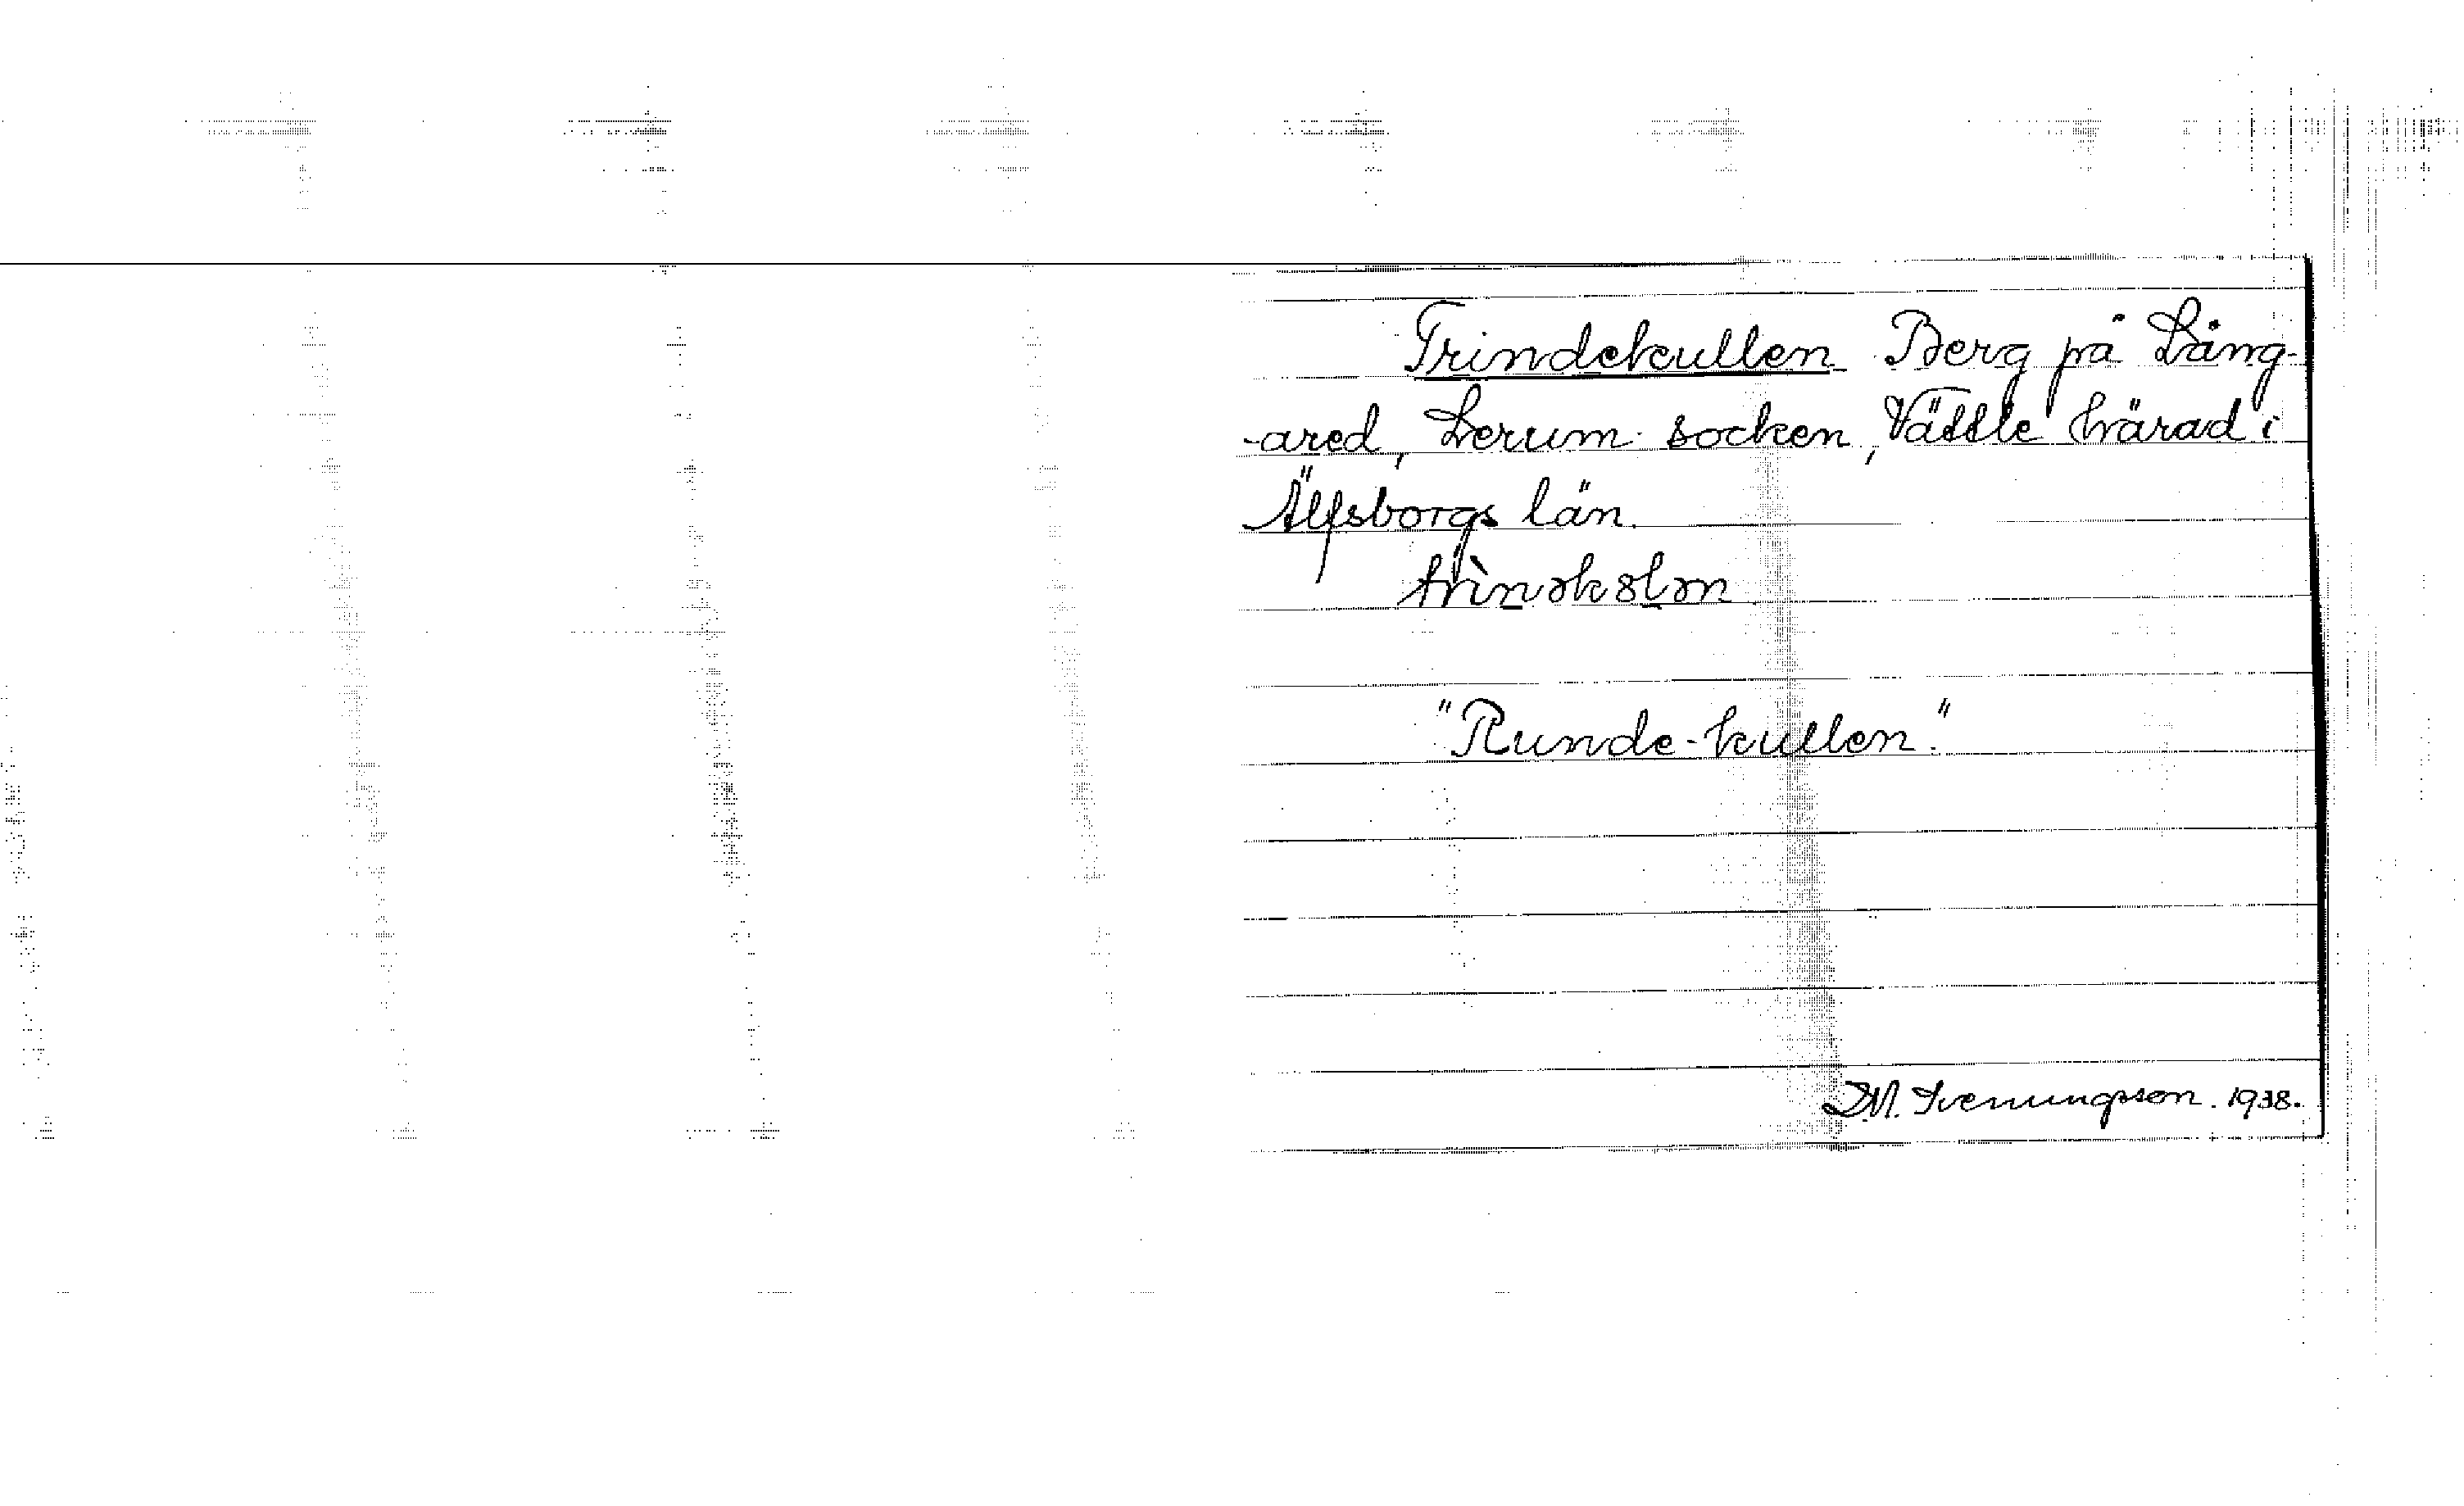 Trindekullen Berg på Lång-
-ared, Lerum socken, Vättle härad i
Älfsborgs län.
trìnəkɵlən
"Runde-kullen."
D.M. Svenungsson. 1938.